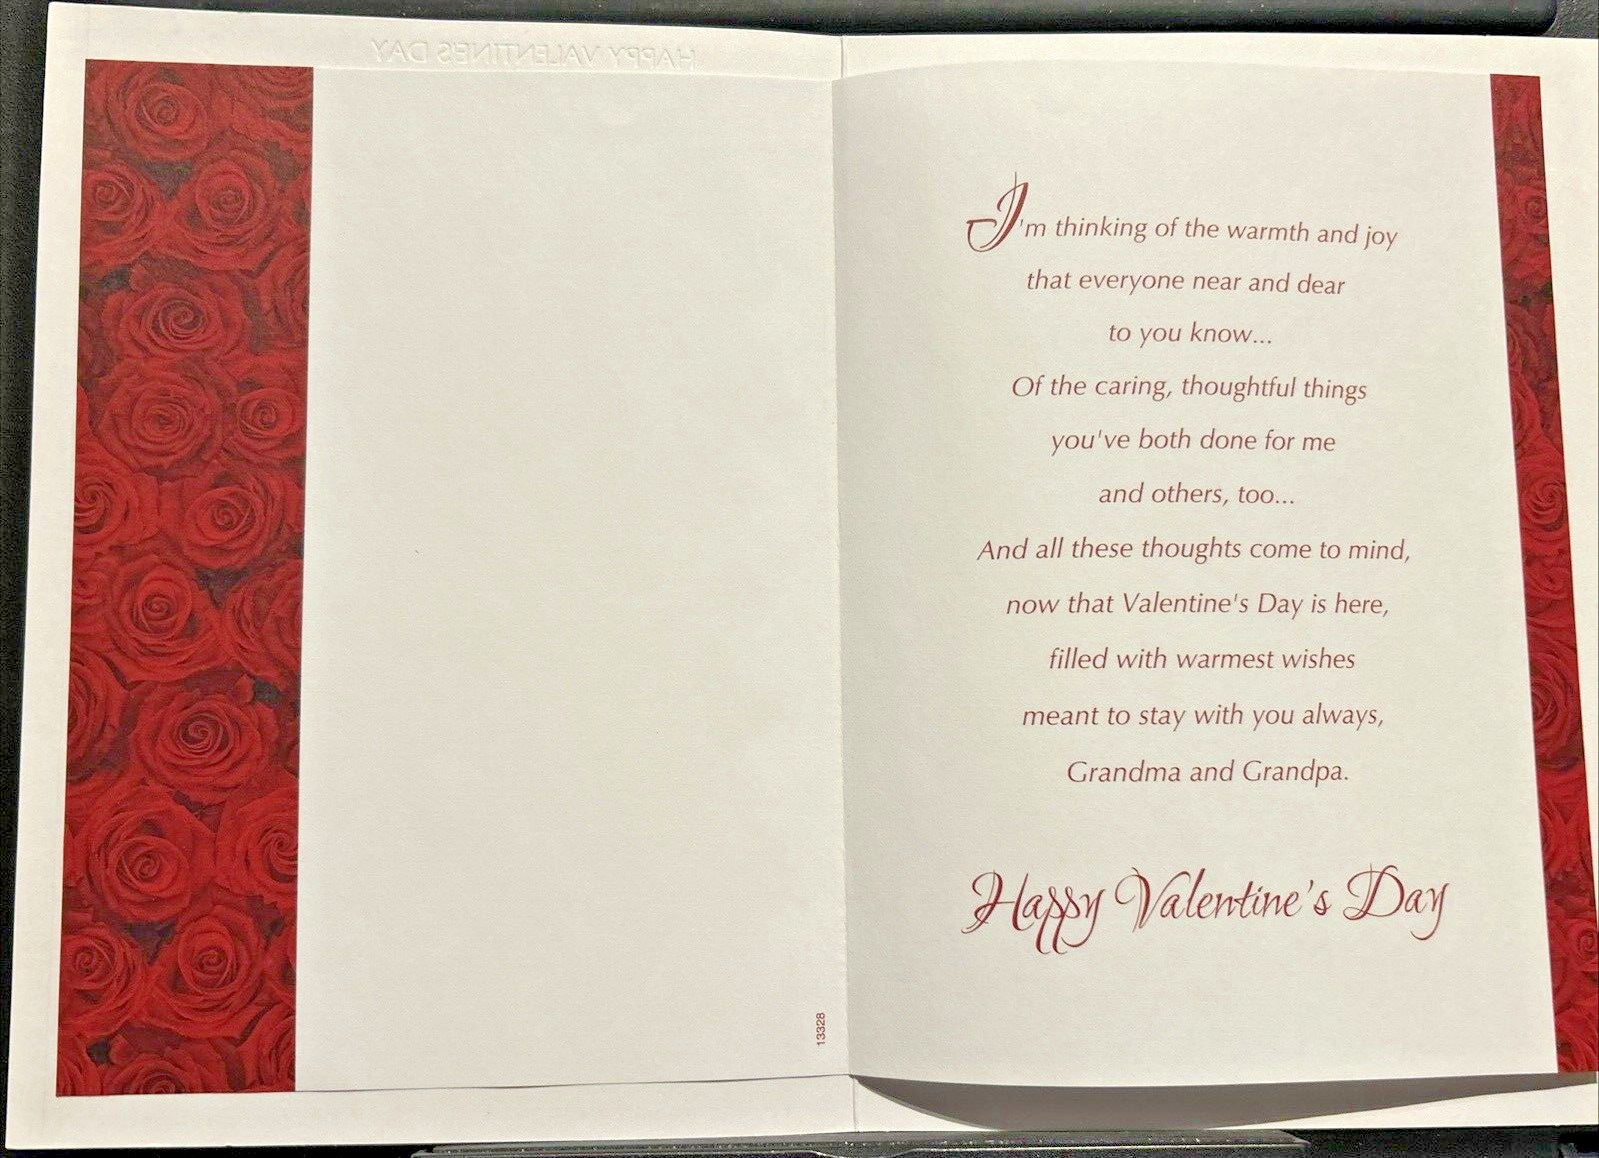 HAPPY VALENTINES DAY
I'm thinking of the warmth and joy
that everyone near and dear
to you know...
Of the caring, thoughtful things
you've both done for me
and others, too...
And all these thoughts come to mind,
now that Valentine's Day is here,
filled with warmest wishes
meant to stay with you always,
Grandma and Grandpa.
Happy Valentine's Day
13328